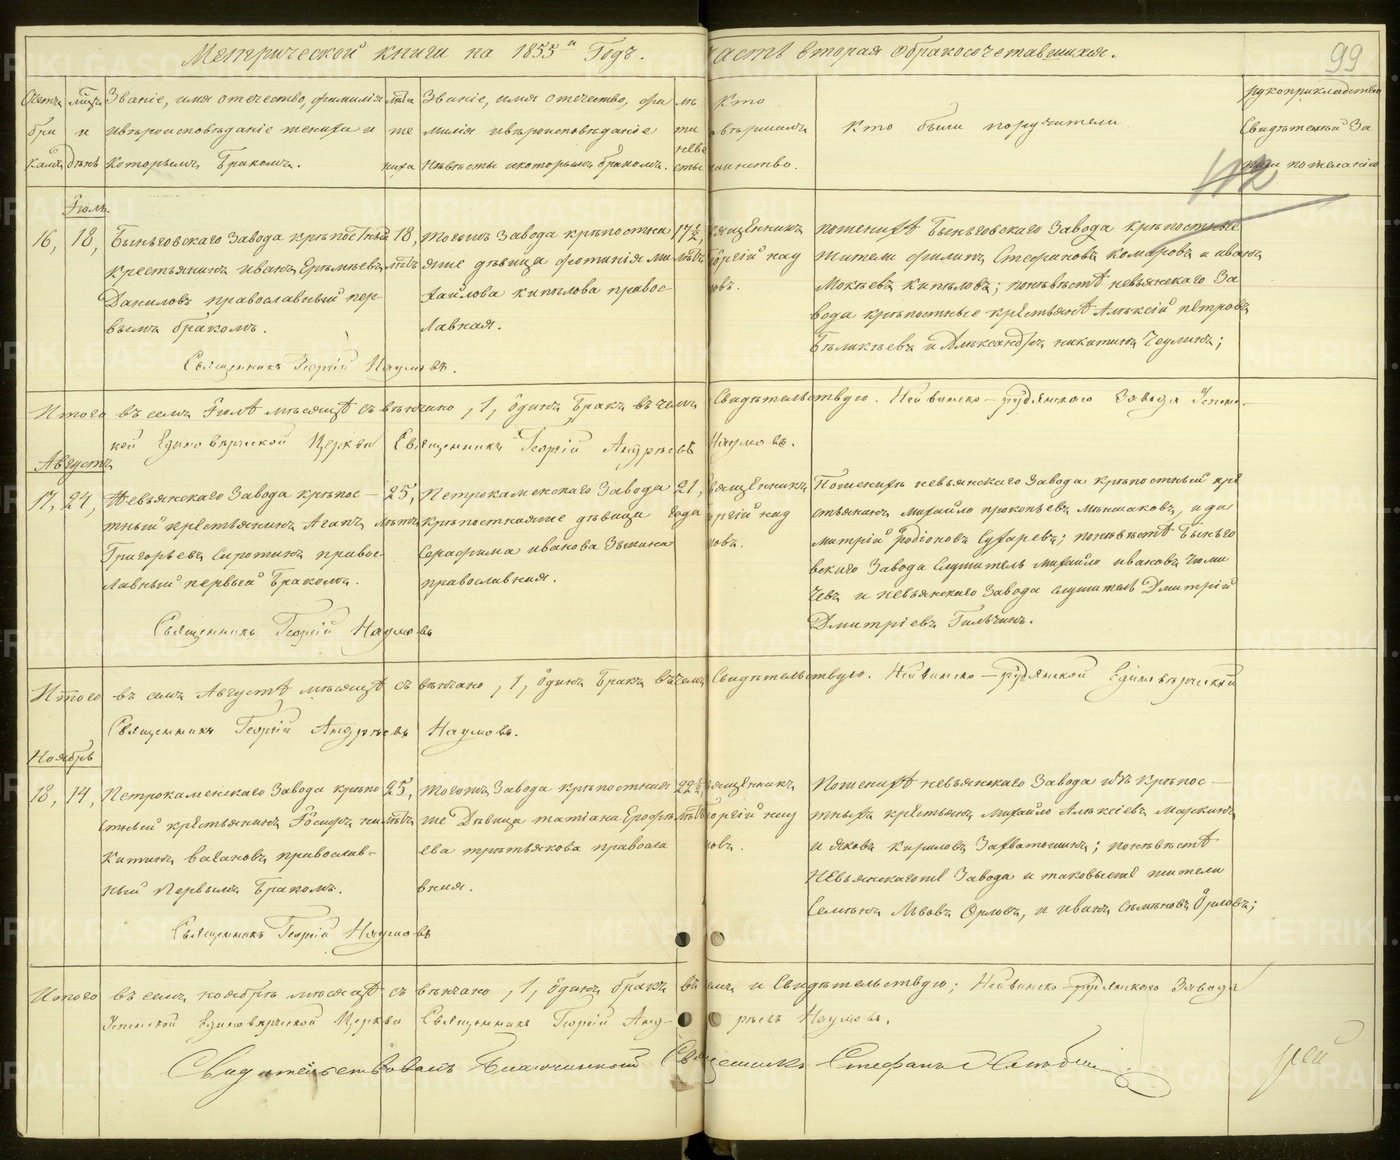 Метрической книги на 1855й Годъ. часть вторая обракосочетавшихся. 99
Счетъ браковъ
мѣсяцъ и день
Званіе, имя отечество, фамилія
ивѣроисповѣданіе жениха и
которымъ Бракомъ.
лѣта жениха
Званіе, имя отечество, фа
милія ивѣроисповѣданіе
Невѣсты икоторымъ бракомъ.
лѣта невѣсты
Кто
совершалъ
таинство.
Кто были поручители
рукоприкладство
Свидѣтелей За
писи пожеланію
112
Іюль
16, 18,
Быньговскаго Завода крѣпостный
крестьянинъ Иванъ Еремѣевъ
Даниловъ православный пер-
вымъ бракомъ.
18, лѣтъ
тогожъ Завода крѣпостна
яже дѣвица фотинія ми
хайлова кипѣлова правос-
лавная.
17½, лѣтъ
Священникъ
Георгій Нау
мовъ.
пожених Быньговскаго Завода крѣпостные
жители филипъ Стефановъ Комаровъ и иванъ
Мокѣевъ Кипѣловъ; поневѣстѣ невьянскаго За
вода крѣпостные крестьяне Алексій петровъ
и Александръ никитинъ
Священникъ Георгій Наумовъ.
Итого въ семъ Іюлѣ мѣсяцѣ съ вѣнчано, 1, одинъ Бракъ въ чемъ Свидѣтельствую. Нейвинско-рудянскаго Завода Успен-
ской Единовѣрческой Церкви Священникъ Георгій Андреевъ Наумовъ.
Августъ
17, 24,
Невьянскаго Завода крѣпос-
тный крестьянинъ Агапъ
Григорьевъ Сиротинъ правос-
лавный первымъ Бракомъ.
25, лѣтъ
Петрокаменскаго Завода
крѣпостнаяже дѣвица
Серафима иванова Зыкина
православная.
21, года
Священникъ
Георгій Нау
мовъ.
Поженихѣ невьянскаго Завода крѣпостный кре
стьянинъ михайло прокопьевъ Меншаковъ, и ди
митрій Родіоновъ Сухаревъ; поневѣстѣ Быньго
вскаго Завода Служитель михайло ивановъ
и невьянскаго Завода служитель Дмитрій
Дмитріевъ
Священникъ Георгій Наумовъ
Итого въ семъ Августѣ мѣсяцѣ съ вѣнчано, 1, одинъ Бракъ въ чемъ Свидѣтельствую. Нейвинско-рудянской Единовѣрческой
Священникъ Георгій Андреевъ Наумовъ.
Ноябрь
18, 14,
Петрокаменскаго Завода крѣпо
стный крестьянинъ Іосифъ ни
китинъ православ-
ный первымъ Бракомъ.
25, лѣтъ
тогожъ Завода крѣпостная
же Дѣвица татіана Ерофѣ
ева третьякова правосла
вная.
22½, лѣтъ
Священникъ
Георгій Нау
мовъ.
Поженихѣ невьянскаго Завода крѣпос-
тныхъ крестьянъ михайло Алексіевъ Маркинъ
и яковъ кириловъ поневѣстѣ
Невьянскагоже Завода и таковыеже жители
Семенъ Львовъ Орловъ, и иванъ Семеновъ Орловъ;
Священникъ Георгій Наумовъ
Итого въ семъ ноябрѣ мѣсяцѣ съ вѣнчано, 1, одинъ бракъ въ чемъ и Свидѣтельствую; Нейвинско-рудянскаго Завода
Успенской Единовѣрческой Церкви Священникъ Георгій Андреевъ Наумовъ.
Свидѣтельствовалъ Благочинной Священникъ Стефанъ